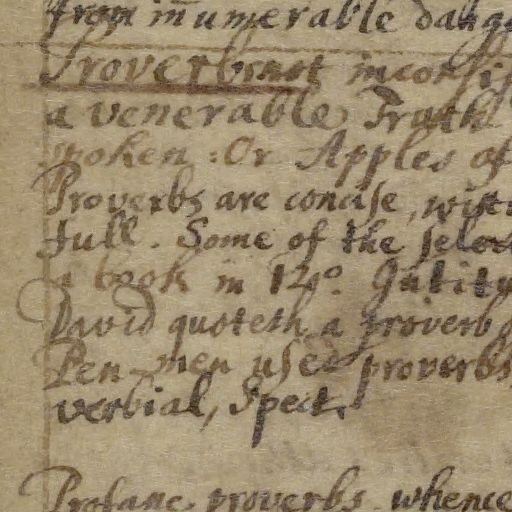 from innumerable dang
Proverbs not inconsis
a venerable Truth
spoken : Or Apples of
Proverbs are concise, witt
full. Some of the selec
a book in 12°.
David quoteth a proverb
Pen-men used proverbs
verbial, Spect.
Profane proverbs whence